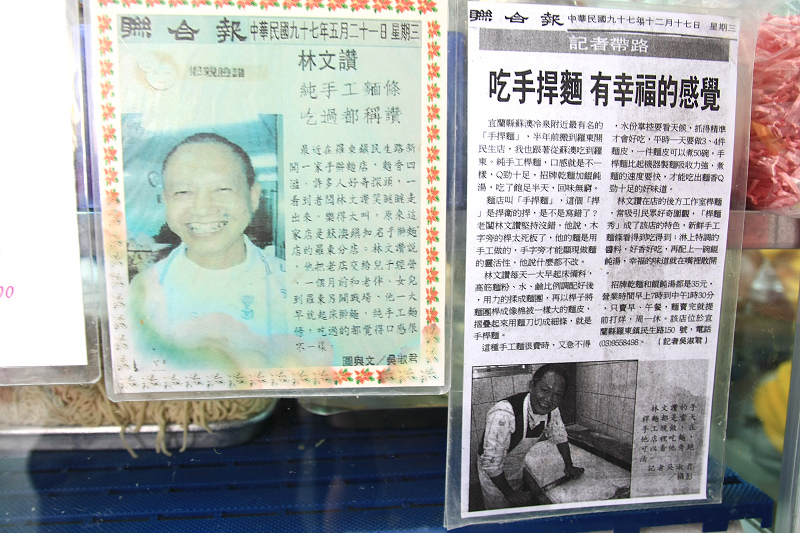 聯合報 中華民國九十七年五月二十一日 星期三
林文讚
純手工麵條
吃過都稱讚
最近在羅東鎮民生路新
開一家手擀麵店,麵香四
溢,許多人好奇探頭,一
看到老闆林文讚笑瞇瞇走
出來,樂得大叫,原來這
家店是蘇澳鎮知名手擀麵
店的羅東分店。林文讚說
,他把老店交給兒子經營
,一個月前和老伴、女兒
到羅東另闢戰場,他一大
早就起床擀麵,純手工麵
條,吃過的都覺得口感很
不一樣。
圖與文/吳淑君
聯合報 中華民國九十七年十二月十七日 星期三
記者帶路
吃手捍麵 有幸福的感覺
宜蘭縣蘇澳冷泉附近最有名的
「手捍麵」,半年前搬到羅東開
民生店,我也跟著從蘇澳吃到羅
東。純手工桿麵,口感就是不一
樣,Q勁十足,招牌乾麵加餛飩
湯,吃了飽足半天,回味無窮。
麵店叫「手捍麵」,這個「捍
」是捍衛的捍,是不是寫錯了?
老闆林文讚堅持沒錯,他說,木
字旁的桿太死板了,他的麵是用
手工做的,手字旁才能顯現做麵
的靈活性,他說什麼都不改。
林文讚每天一大早起床備料、
高筋麵粉、水、鹼比例調配好後
,用力的揉成麵團,再以桿子將
麵團桿成像棉被一樣大的麵皮,
摺疊起來用麵刀切成細條,就是
手桿麵。
這種手工麵很費時,又急不得
,水份掌控要看天候,抓得精準
才會好吃,平時一天要做3、4件
麵皮,一件麵皮可以煮50碗,手
桿麵比起機器製麵吸收力強,煮
麵的速度要快,才能吃出麵香Q
勁十足的好味道。
林文讚在店的後方工作室桿麵
,常吸引民眾好奇圍觀,「桿麵
秀」成了該店的特色,新鮮手工
麵條看得到吃得到;淋上特調的
醬料,好香好吃,再配上一碗餛
飩湯,幸福的味道就在嘴裡散開
。
招牌乾麵和餛飩湯都是35元,
營業時間早上7時到中午1時30分
,只賣早、午餐,麵賣完就提
前打烊,周一休。該店位於宜
蘭縣羅東鎮民生路150號,電話
(03)9558498。 (記者吳淑君)
林文讚的手
桿麵都是當天
手工現做,在
他店裡吃麵,
可以看他秀絕
活。
記者吳淑君
/攝影